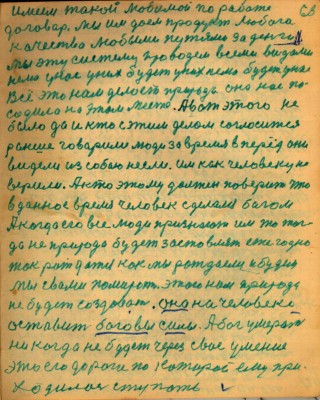 имеем такой любимой по работе
договар. Мы им доем продукт любога
качества любыми путями за деньги
Мы эту систему проводем всеми видами
нема у вас у них будет у них нема будет у нас
Всё это нам делает природа она нас по
содила на этом месте. А вот этого не
было да и кто с этим делом согласится
раньше говарили люди за время вперёд они
видели из собою несли. им как человеку не
верили. А кто этому должен поверить что
в данное время человек сделался богом
А когда его все люди признают им то тог
да не природа будет заставлять ежегодно
так рождати как мы рождаем и будим
мы своим помирать. этого нам природа
не будет создовать. она на человеке
оставит боговы силы. А бог умерать
ни когда не будет через свое умение
это его дороги по которой ему при
ходилось ступать